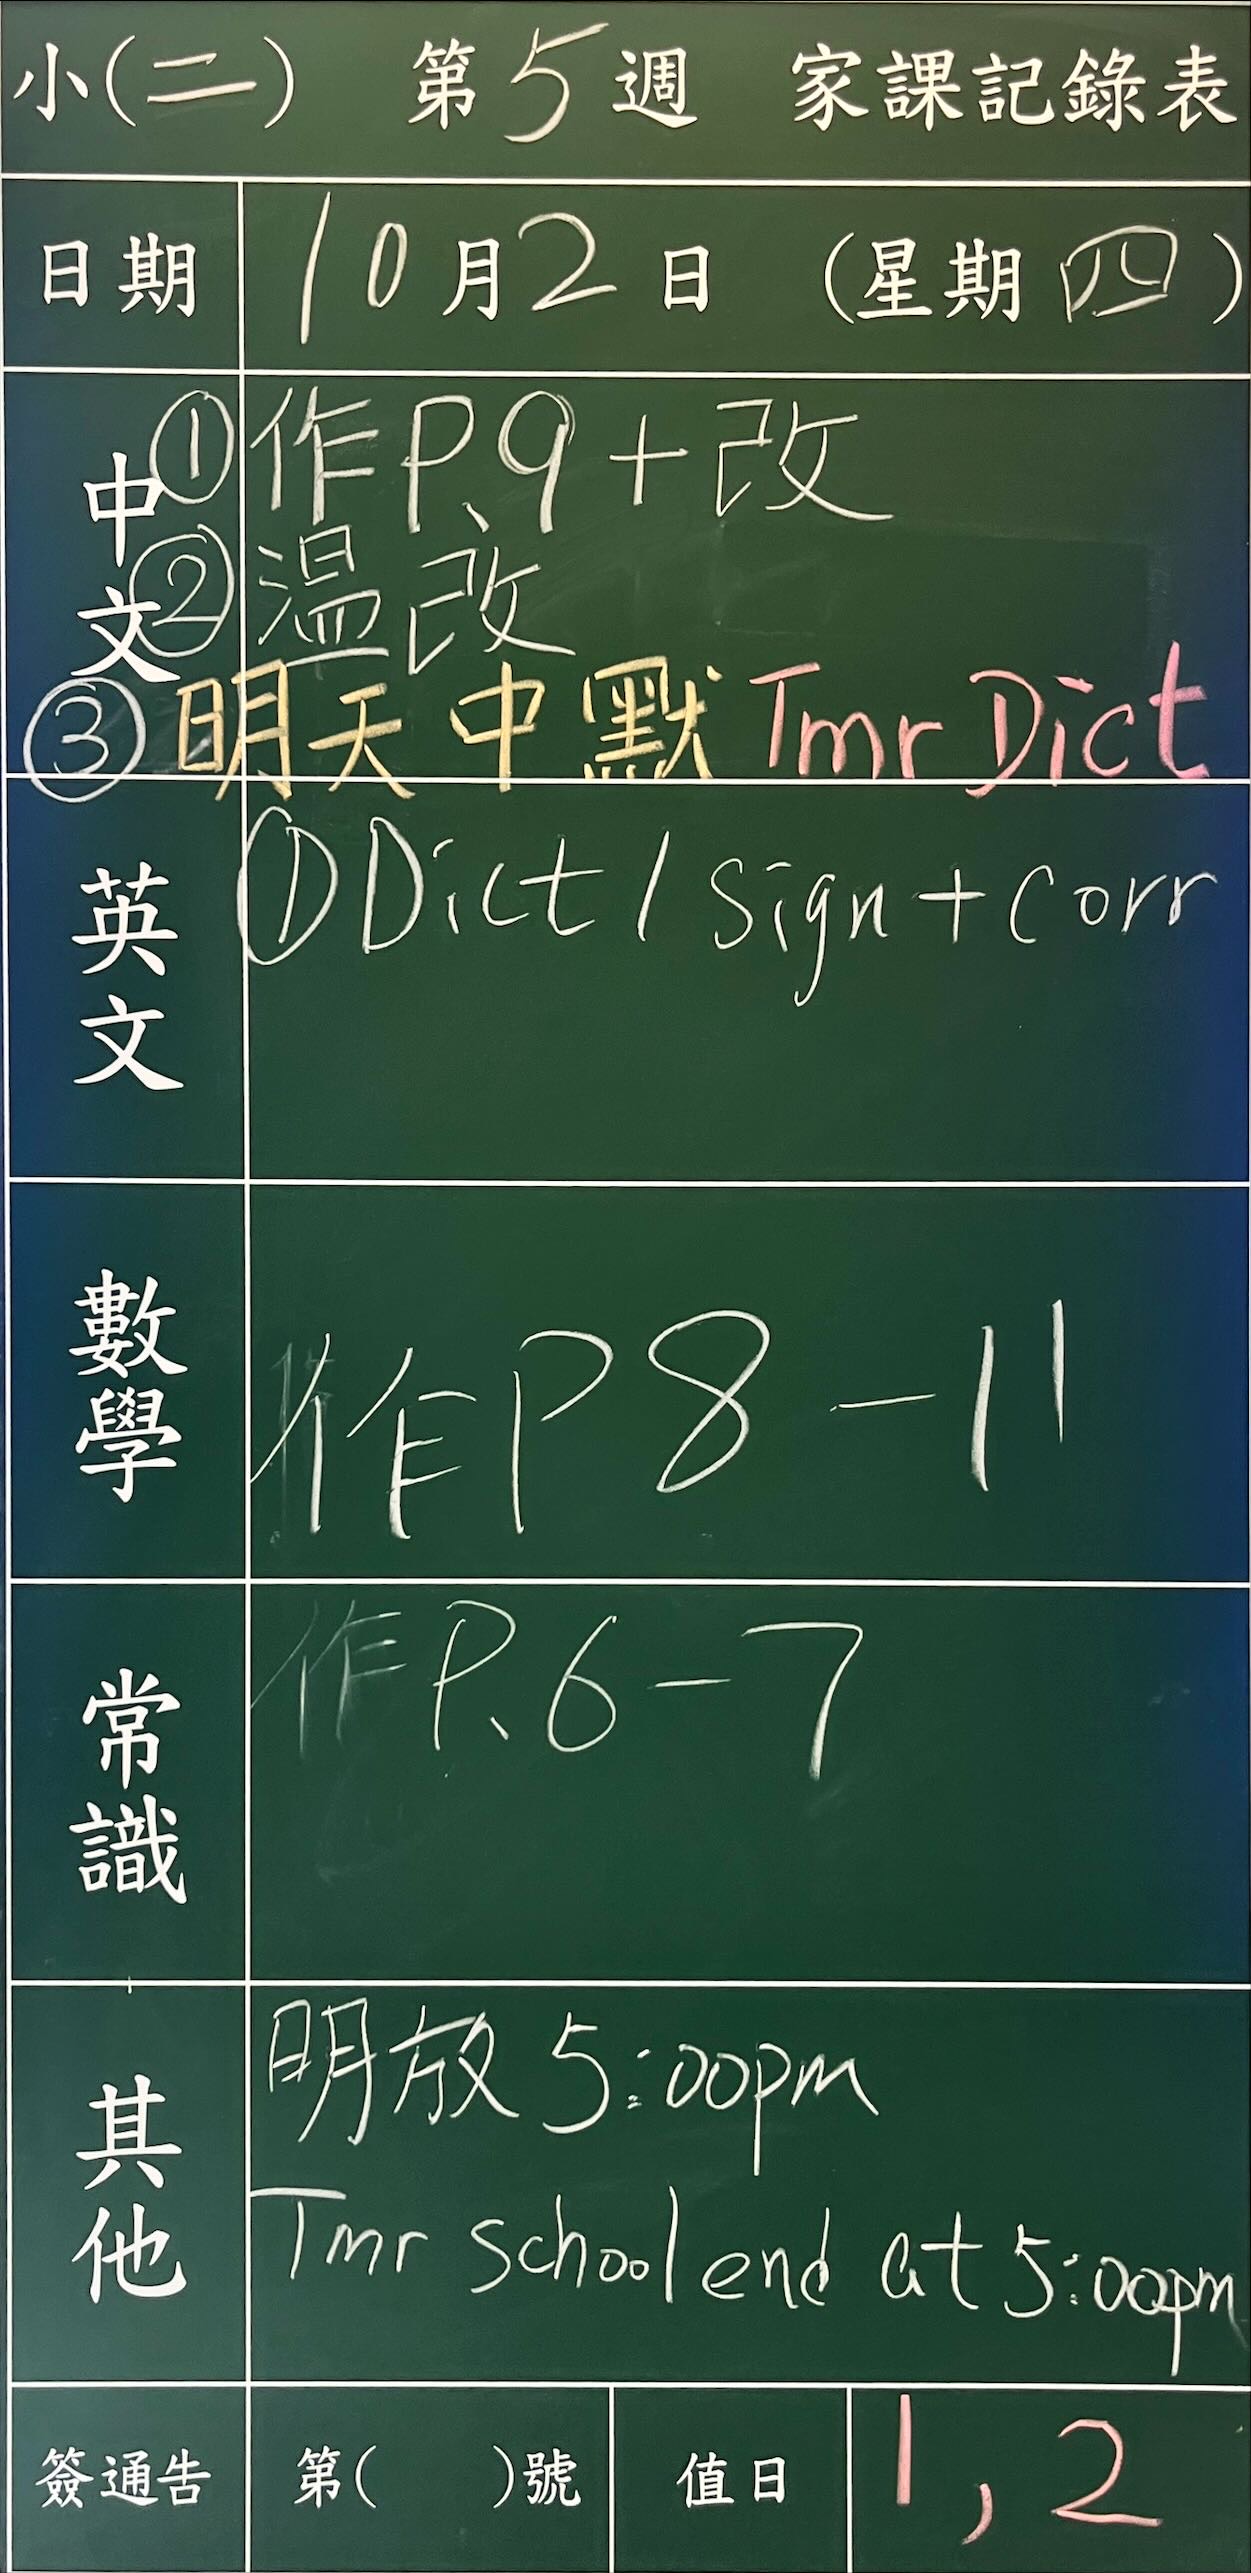 小(二) 第5週 家課記錄表
日期 10月2日 (星期四)
中文
①作P.9+改
②温改
③明天中默 Tmr Dict
英文
①Dict / sign + corr
數學
作P8-11
常識
作P.6-7
其他
明放5:00pm
Tmr school end at 5:00pm
簽通告 第( )號 值日 1,2